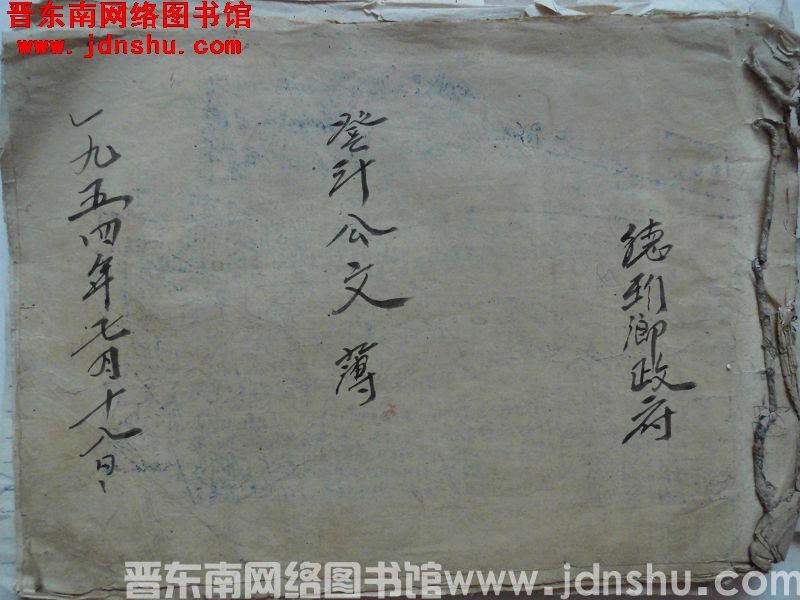 晋东南网络图书馆
www.jdnshu.com
德到鄉政府
登计公文薄
一九五四年七月十八日
晋东南网络图书馆www.jdnshu.com